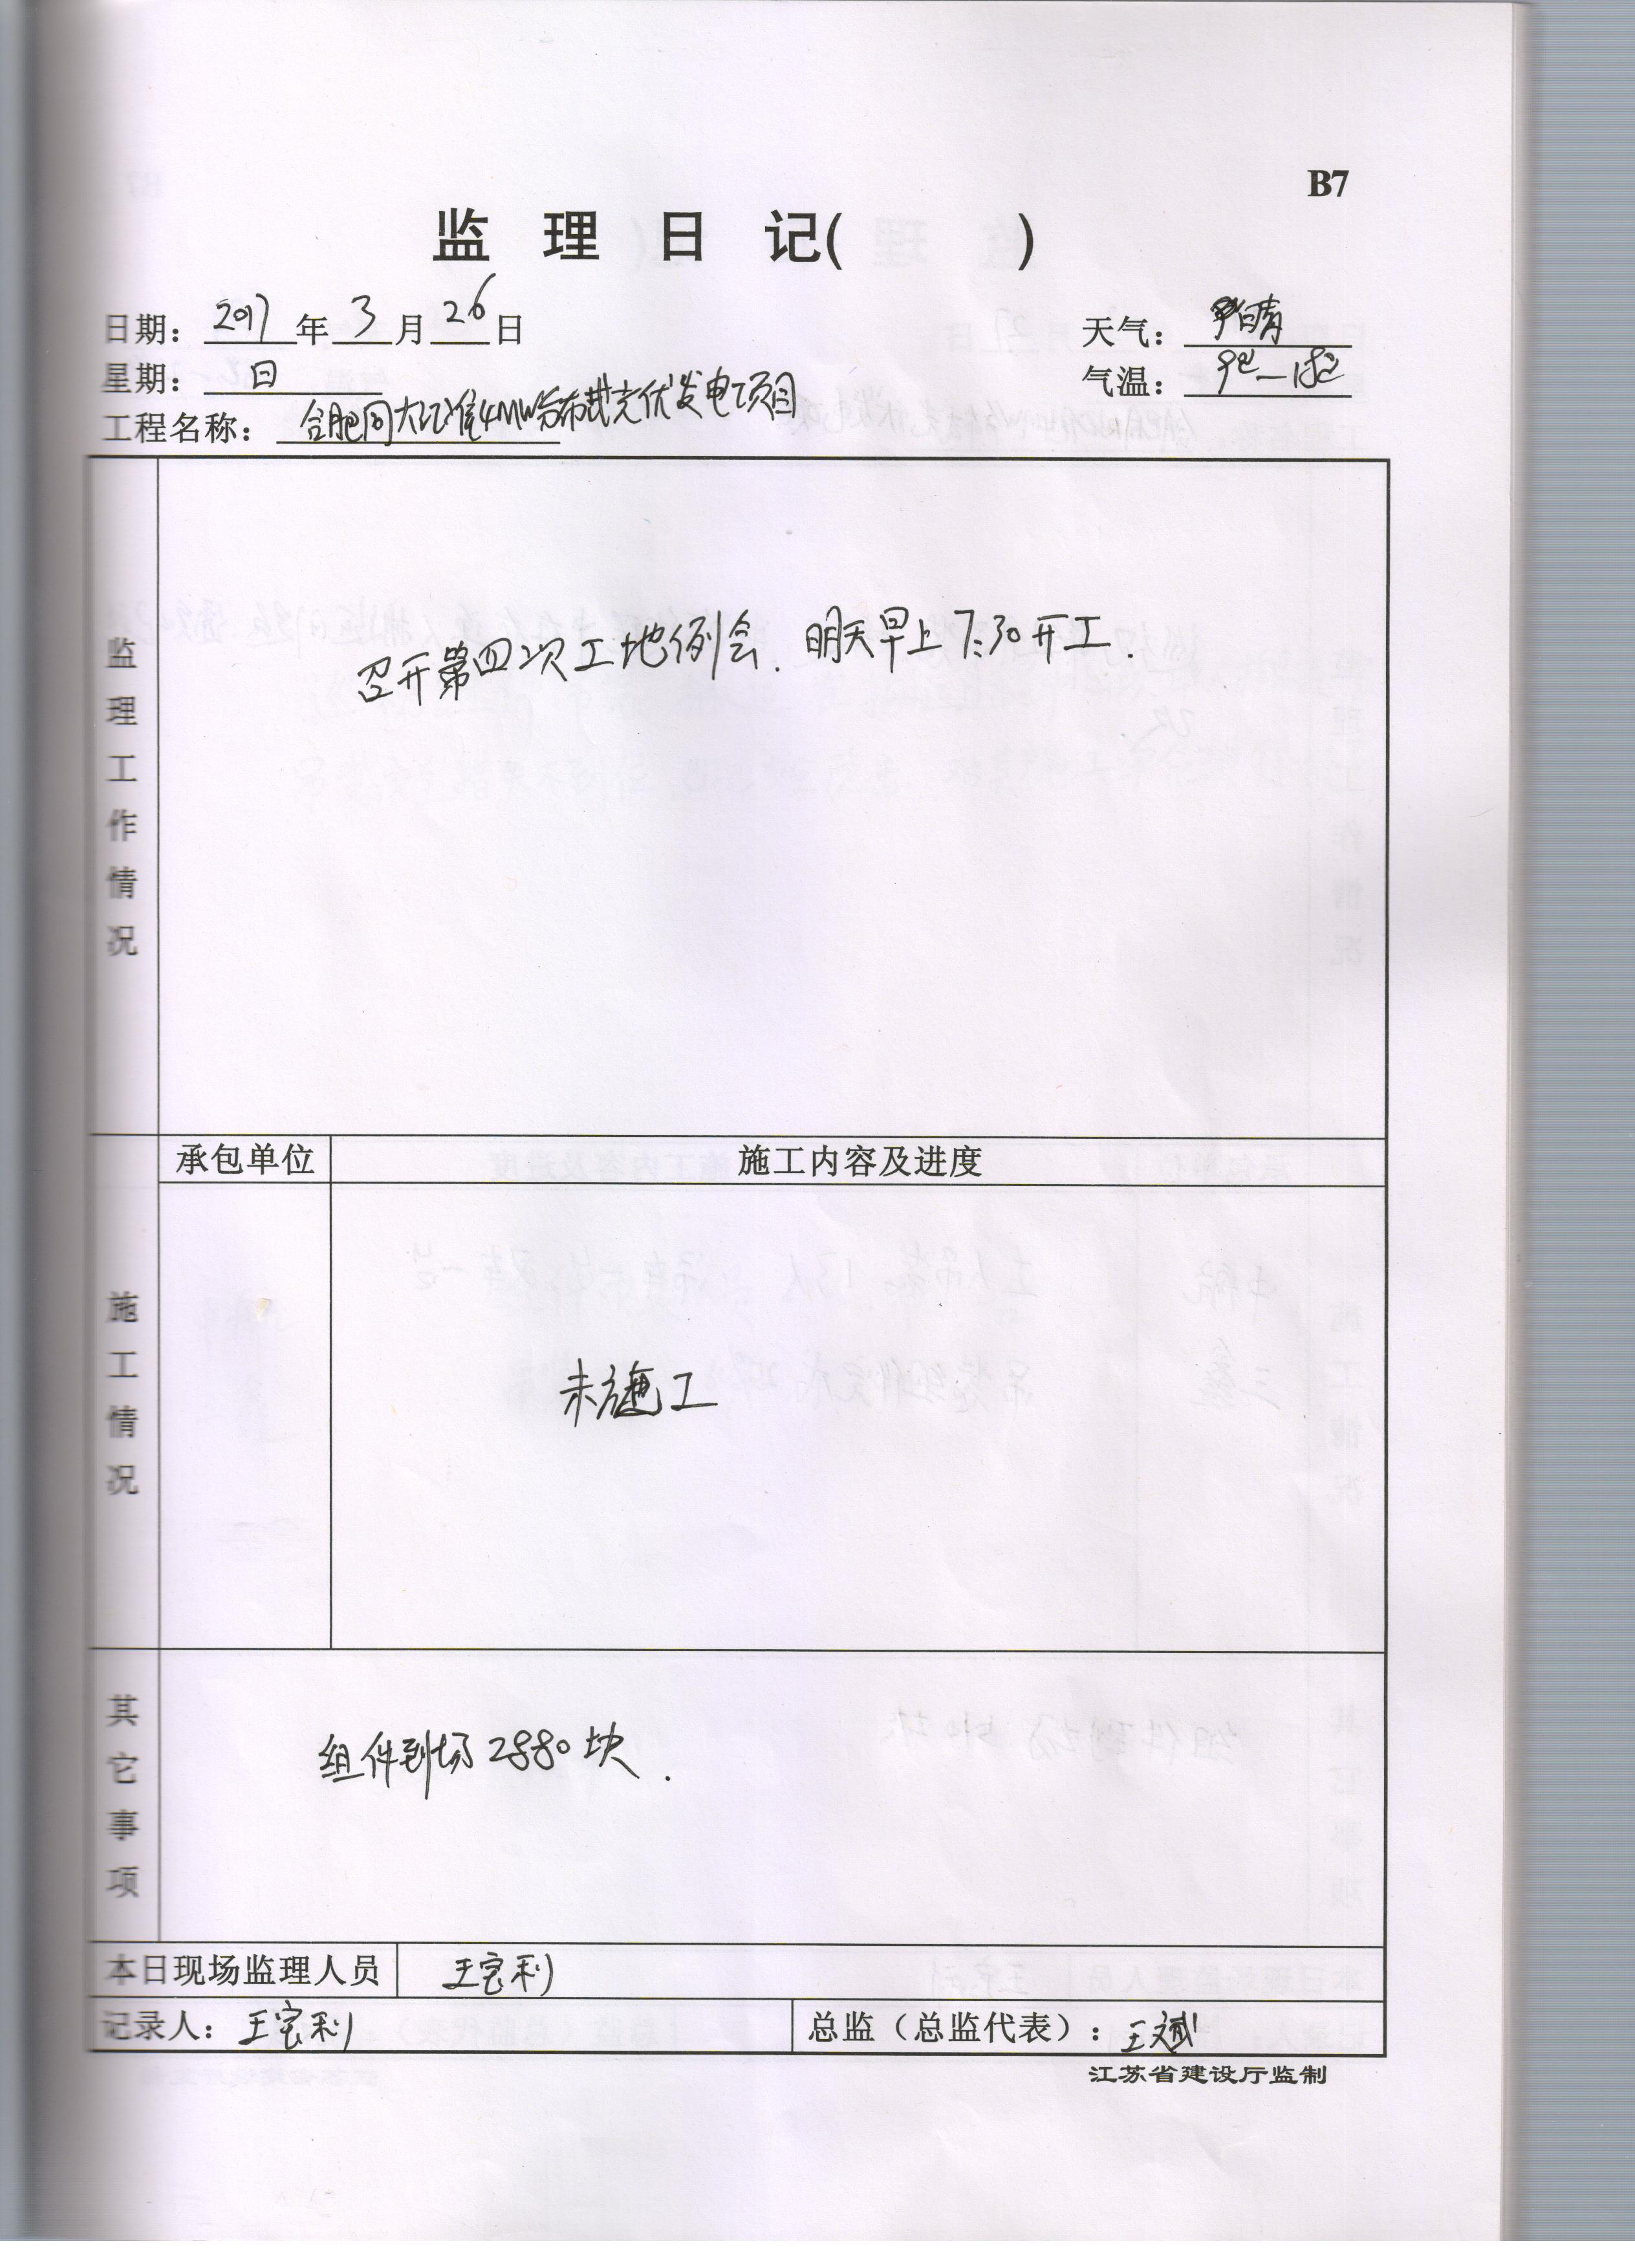 B7
监 理 日 记( )
日期：2017年3月26日
天气：晴
星期：日
气温：9℃—18℃
工程名称：合肥同大江淮4MW分布式光伏发电项目
监理工作情况
召开第四次工地例会．明天早上7:30开工．
承包单位 施工内容及进度
施工情况
未施工
其它事项
组件到场2880块．
本日现场监理人员 王宝利
记录人：王宝利 总监（总监代表）：王斌
江苏省建设厅监制